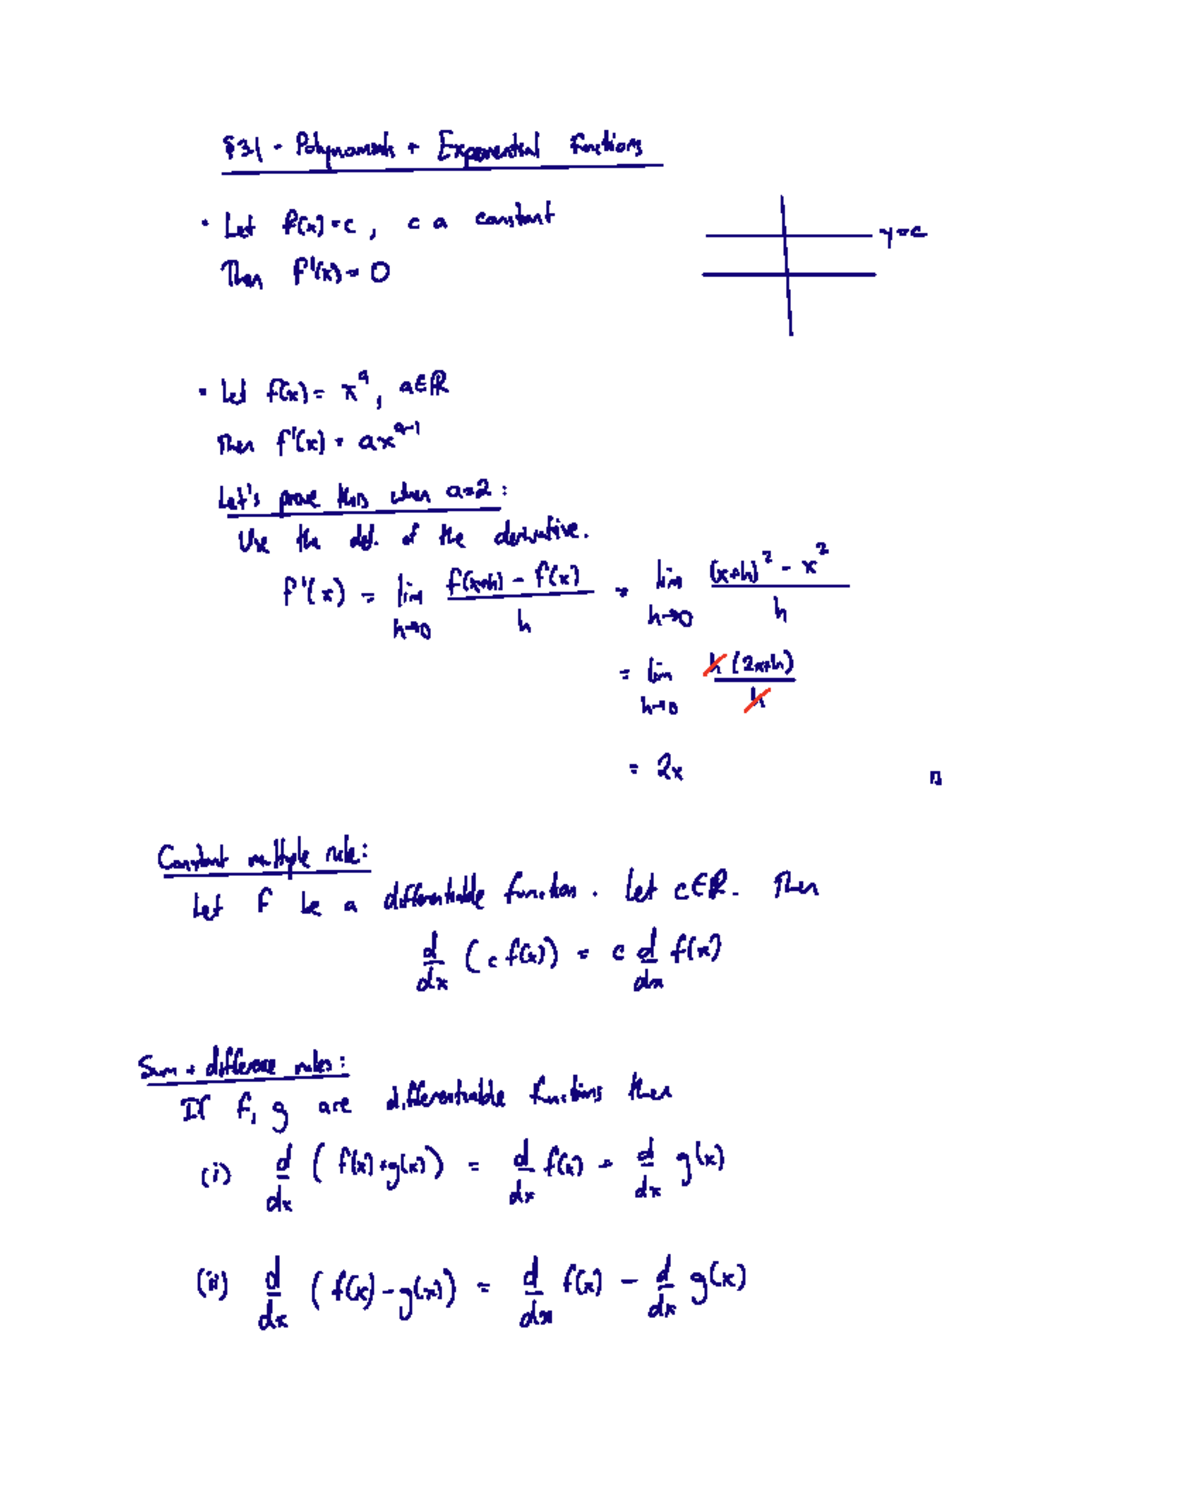 §3.1 - Polynomials + Exponential Functions
• Let f(x) = c, c a constant
y=c
Then f'(x) = 0
• Let f(x) = x^a, a∈ℝ
Then f'(x) = ax^(a-1)
Let's prove this when a=2:
Use the def. of the derivative.
f'(x) = lim h→0 (f(x+h) - f(x))/h = lim h→0 ((x+h)^2 - x^2)/h
= lim h→0 h(2x+h)/h
= 2x □
Constant multiple rule:
Let f be a differentiable function. Let c∈ℝ. Then
d/dx (c f(x)) = c d/dx f(x)
Sum + difference rules:
If f, g are differentiable functions then
(i) d/dx (f(x)+g(x)) = d/dx f(x) + d/dx g(x)
(ii) d/dx (f(x)-g(x)) = d/dx f(x) - d/dx g(x)